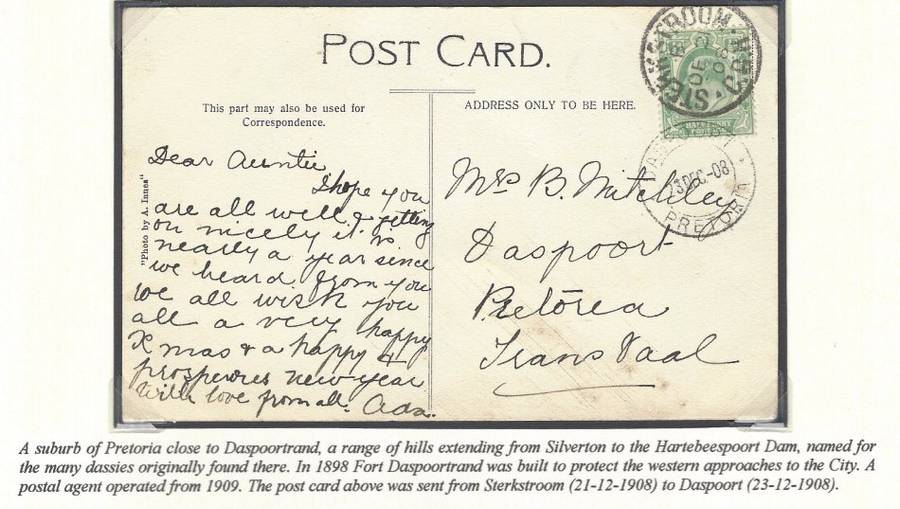 POST CARD.
This part may also be used for
Correspondence.
ADDRESS ONLY TO BE HERE.
"Photo by A. Innes"
Dear Auntie
I hope you
are all well & getting
on nicely it is
nearly a year since
we heard from you
we all wish you
all a very happy
Xmas & a happy &
prosperres new year
With love from all. Ada.
Mrs B. Mitchley
Daspoort
Pretorea
Trans Vaal
STERKSTROOM
DE
08
HALFPENNY
23 DEC 08
PRETORIA
A suburb of Pretoria close to Daspoortrand, a range of hills extending from Silverton to the Hartebeespoort Dam, named for
the many dassies originally found there. In 1898 Fort Daspoortrand was built to protect the western approaches to the City. A
postal agent operated from 1909. The post card above was sent from Sterkstroom (21-12-1908) to Daspoort (23-12-1908).